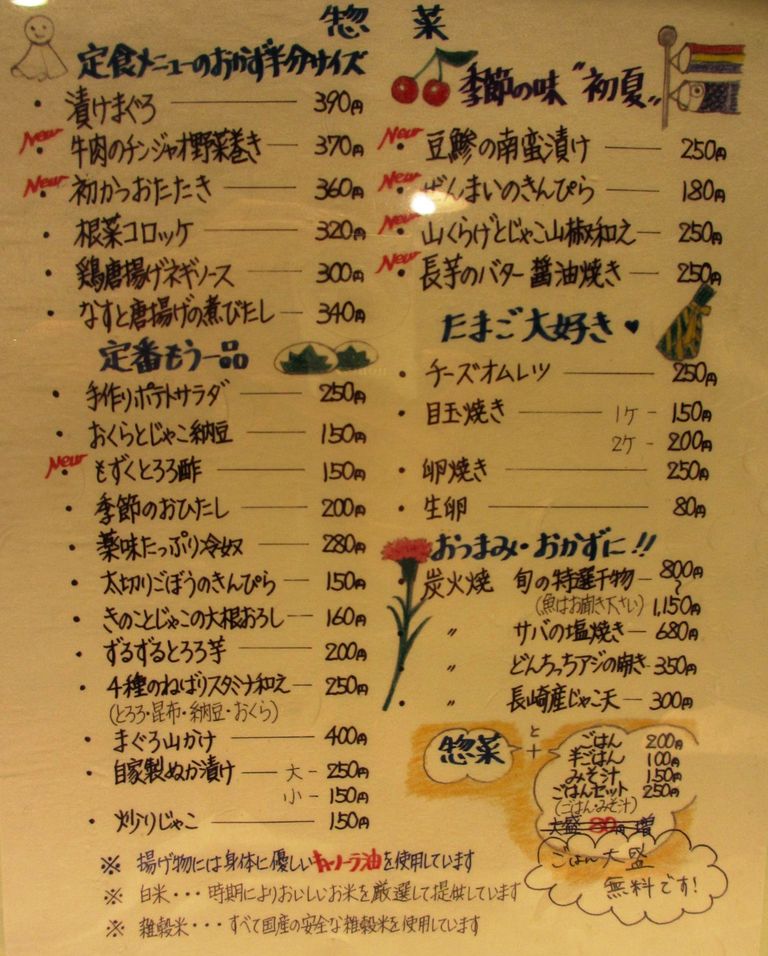 惣菜
定食メニューのおかず半分サイズ
・漬けまぐろ 390円
New・牛肉のチンジャオ野菜巻き 370円
New・初かつおたたき 360円
・根菜コロッケ 320円
・鶏唐揚げネギソース 300円
・なすと唐揚げの煮びたし 340円
定番もう一品
・手作りポテトサラダ 250円
・おくらとじゃこ納豆 150円
New・もずくとろろ酢 150円
・季節のおひたし 200円
・薬味たっぷり冷奴 280円
・太切りごぼうのきんぴら 150円
・きのことじゃこの大根おろし 160円
・ずるずるとろろ芋 200円
・4種のねばりスタミナ和え 250円
(とろろ・昆布・納豆・おくら)
・まぐろ山かけ 400円
・自家製ぬか漬け 大-250円
小-150円
・炒りじゃこ 150円
季節の味〝初夏〟
New・豆鯵の南蛮漬け 250円
New・ぜんまいのきんぴら 180円
New・山くらげとじゃこ山椒和え 250円
New・長芋のバター醤油焼き 250円
たまご大好き♥
・チーズオムレツ 250円
・目玉焼き 1ケ-150円
2ケ-200円
・卵焼き 250円
・生卵 80円
おつまみ・おかずに!!
・炭火焼 旬の特選干物-800円
〜
(魚はお聞き下さい) 1,150円
・〃 サバの塩焼き-680円
・〃 どんちっちアジの開き-350円
・〃 長崎産じゃこ天-300円
惣菜 と+
ごはん 200円
半ごはん 100円
みそ汁 150円
ごはんセット 250円
(ごはん・みそ汁)
大盛 80円増
ごはん大盛
無料です!
※ 揚げ物には身体に優しいキャノーラ油を使用しています
※ 白米・・・時期によりおいしいお米を厳選して提供しています
※ 雑穀米・・・すべて国産の安全な雑穀米を使用しています